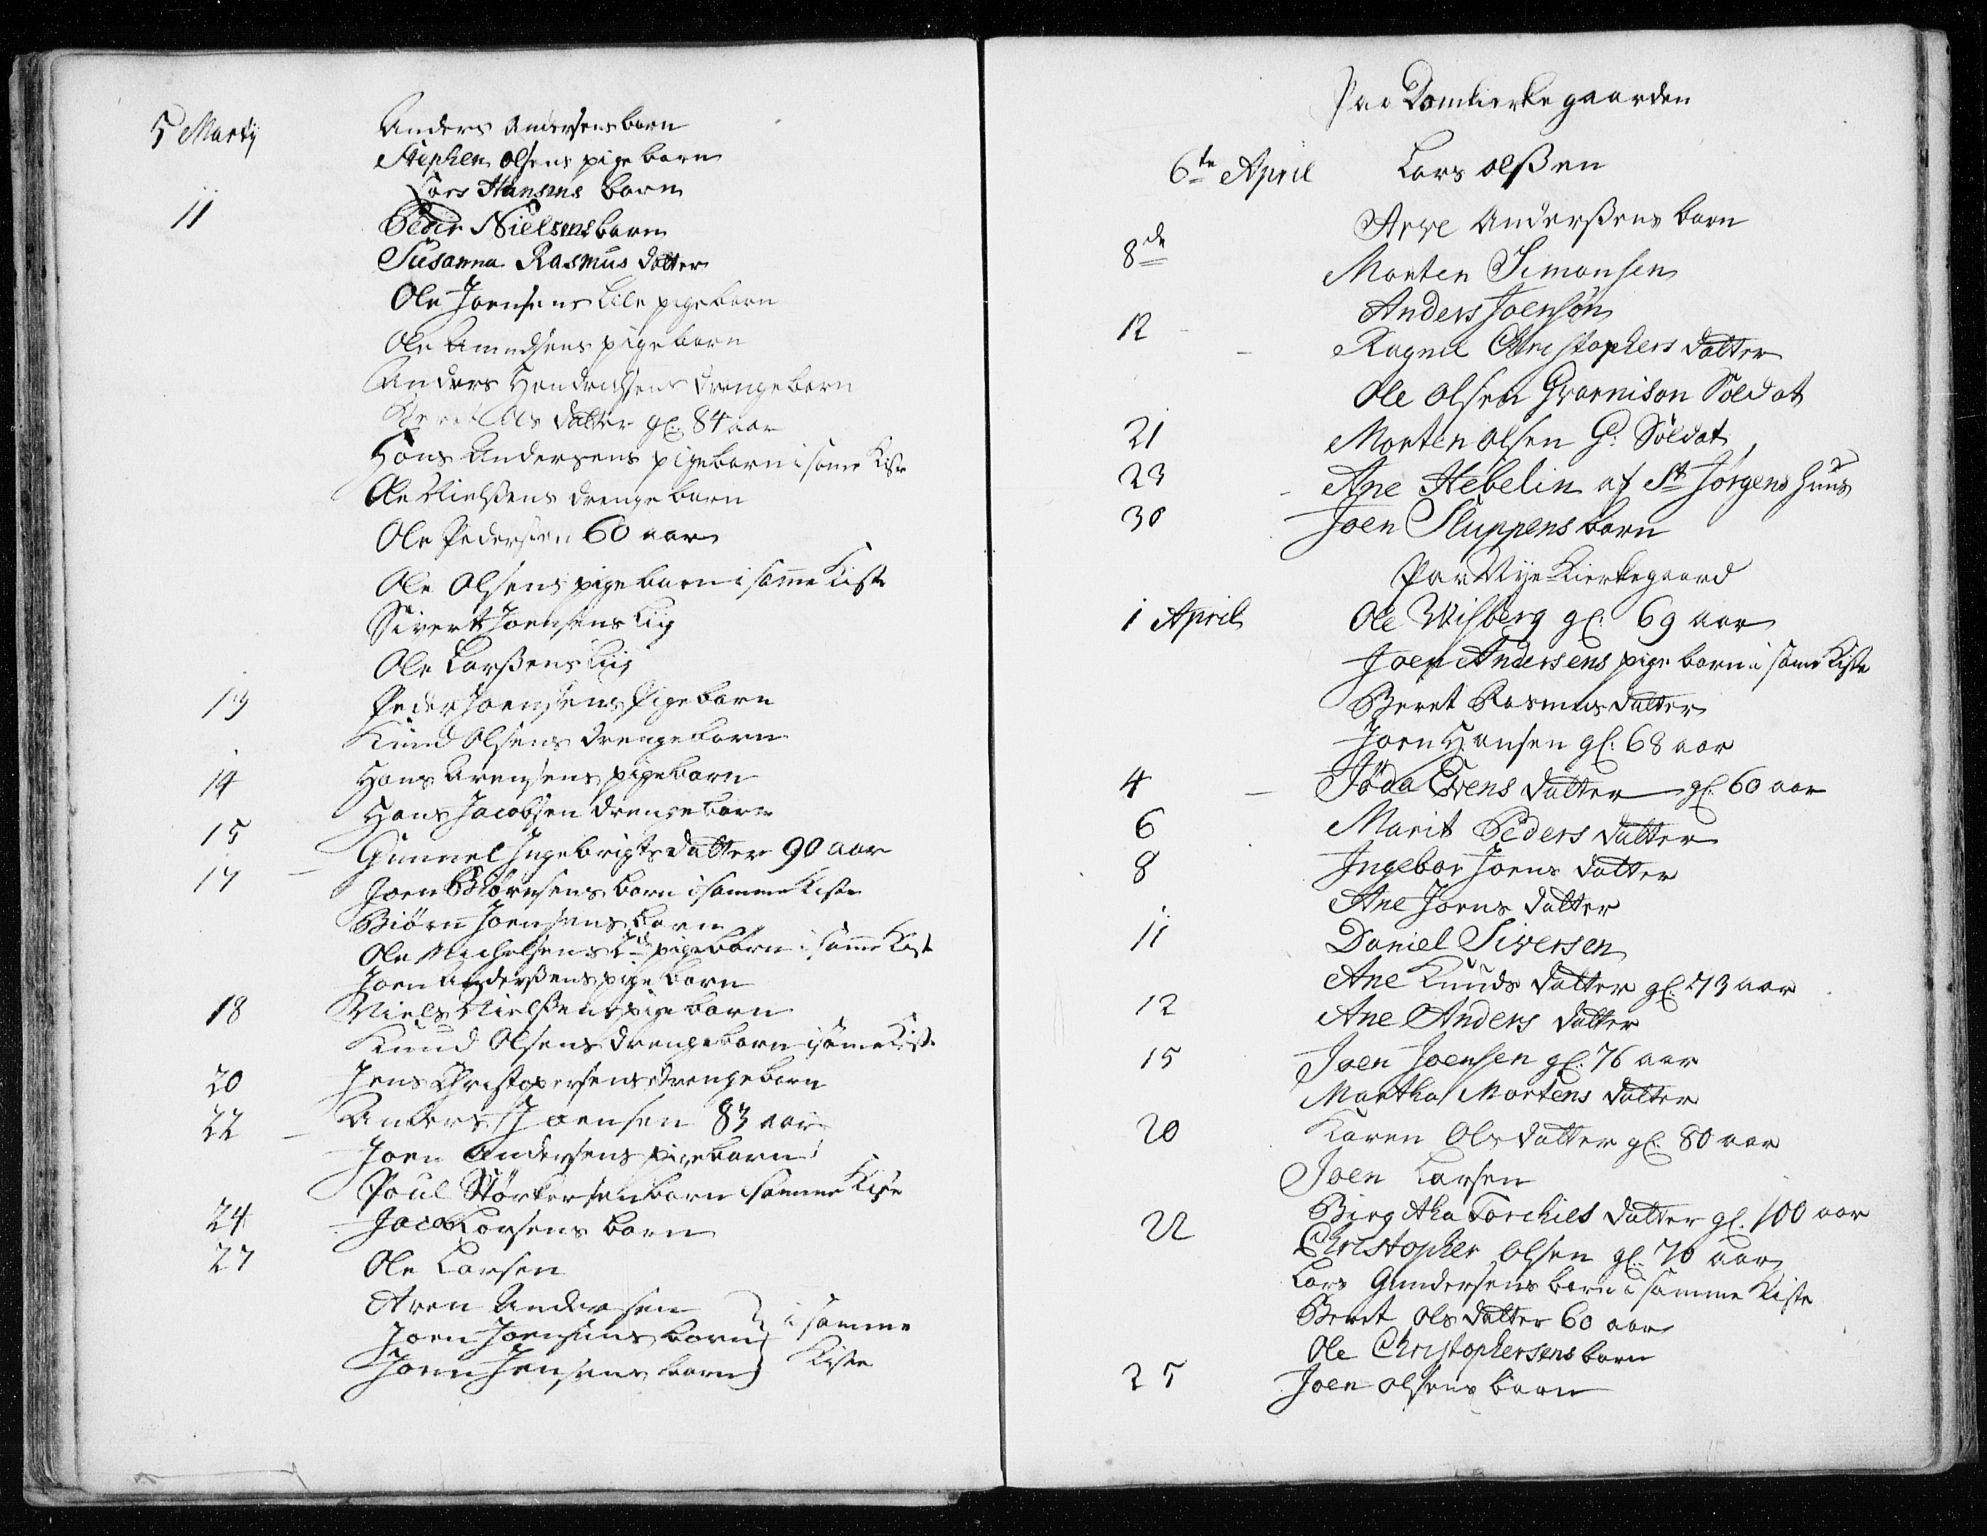 5 Martij Anders Andersens barn
Stephen Olsens pige barn
Lars Hansens barn
11 Peder Nielsens barn
Susanna Rasmus datter
Ole Joensens Lile pigebarn
Ole Amundsens pigebarn
Anders Hendrichsens drengebarn
Ols datter gl: 84 aar
Hans Andersens pigebarn i same Kiste
Ole Nielsens drengebarn
Ole Pedersen 60 aar
Ole Olsens pigebarn i same Kiste
Sivert Joensens Liig
Ole Larßens Liig
13 Peder Joensens Pigebarn
Knud Olsens drengebarn
14 Hans Arensens pigebarn
Hans Jacobsen drengebarn
15 Gunnel Ingebrigts datter 90 aar
17 Joen Biörnsens barn i samme Kiste
Biörn Joensens barn
Ole Michelsens pigebarn i same Kist
Joen Anderßens pige barn
18 Niels Nielßens pige barn
Knud Olsens drengebarn i same Kist
20 Jens Christopersens drengebarn
22 Anders Joensen 83 aar
Joen Andersens pigebarn
Poul Störkersen barn i samme Kiste
24 Jacob Larsens barn
27 Ole Larsen
Aren Andersen
Joen Joensens barn i samme
Joen Jensens barn Kiste
Paa Domkierkegaarden
6te April Lars olßen
Arve Anderßens barn
8de Morten Simonsen
Anders Joensøn
12 Ragnil Christophers datter
Ole olsen Gvarnison Soldat
21 Morten olsen G: Soldat
23 Ane Hebelin af St Jørgens huus
30 Joen Sluppens barn
Paa Nye Kierkegaard
1 April Ole Wisberg gl: 69 aar
Joen Andersens pige barn i same Kiste
Beret Rasmus datter
Joen Hansen gl: 68 aar
4 Föda Evens datter gl: 60 aar
6 Marit Peders datter
8 Ingebor Joens datter
Ane Joens datter
11 Daniel Siversen
Ane Knuds datter gl: 73 aar
12 Ane Anders datter
15 Joen Joensen gl: 76 aar
Martha Mortens datter
20 Karen Ols datter gl: 80 aar
Joen Larsen
22 Birgitha Torchils datter gl: 100 aar
Christopher olsen gl: 70 aar
Lars Gundersens barn i samme Kiste
Beret Ols datter 60 aar
Ole Christophersens barn
25 Joen olsens barn